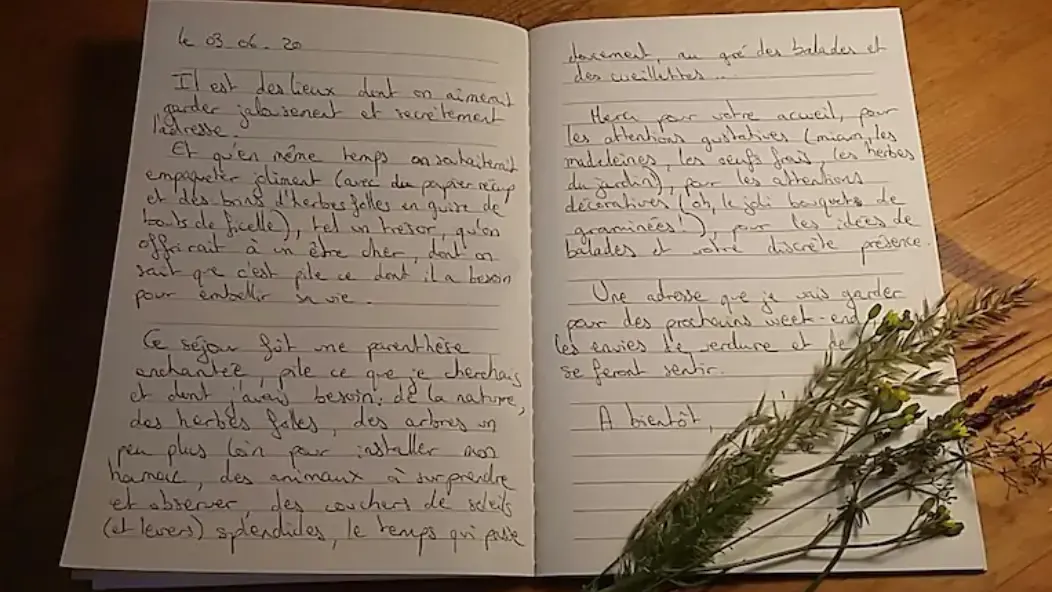 le 03.06.20
Il est des lieux dont on aimerait
garder jalousement et secrètement
l'adresse.
Et qu'en même temps on souhaiterait
empaqueter joliment (avec du papier récup
et des brins d'herbes folles en guise de
bouts de ficelle), tel un trésor, qu'on
offrirait à un être cher, dont on
sait que c'est pile ce dont il a besoin
pour embellir sa vie.
Ce séjour fût une parenthèse
enchantée, pile ce que je cherchais
et dont j'avais besoin: de la nature,
des herbes folles, des arbres un
peu plus loin pour installer mon
hamac, des animaux à surprendre
et observer, des couchers de soleils
(et levers) splendides, le temps qui passe
doucement, au gré des balades et
des cueillettes...
Merci pour votre accueil, pour
les attentions gustatives (miam, les
madeleines, les oeufs frais, les herbes
du jardin), pour les attentions
décoratives (oh, le joli bouquets de
graminées!), pour les idées de
balades et votre discrète présence.
Une adresse que je vais garder
pour des prochains week-end
les envies de verdure et de
se feront sentir.
A bientôt,